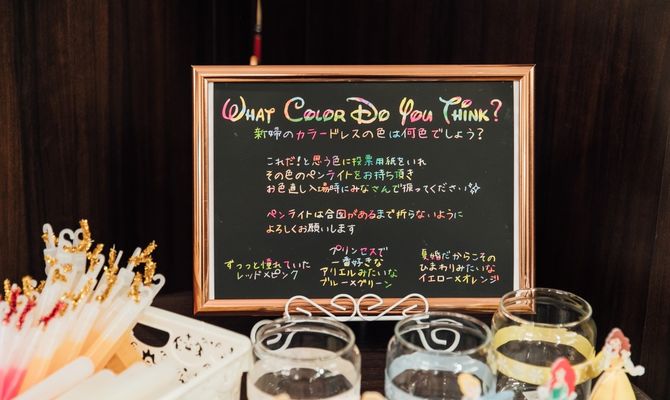 What Color Do You Think?
新婦のカラードレスの色は何色でしょう?
これだ!と思う色に投票用紙をいれ
その色のペンライトをお持ち頂き
お色直し入場時にみなさんで振ってください✨
ペンライトは合図があるまで折らないように
よろしくお願いします
ずっっと憧れていた
レッド×ピンク
プリンセスで
一番好きな
アリエルみたいな
ブルー×グリーン
夏婚だからこその
ひまわりみたいな
イエロー×オレンジ